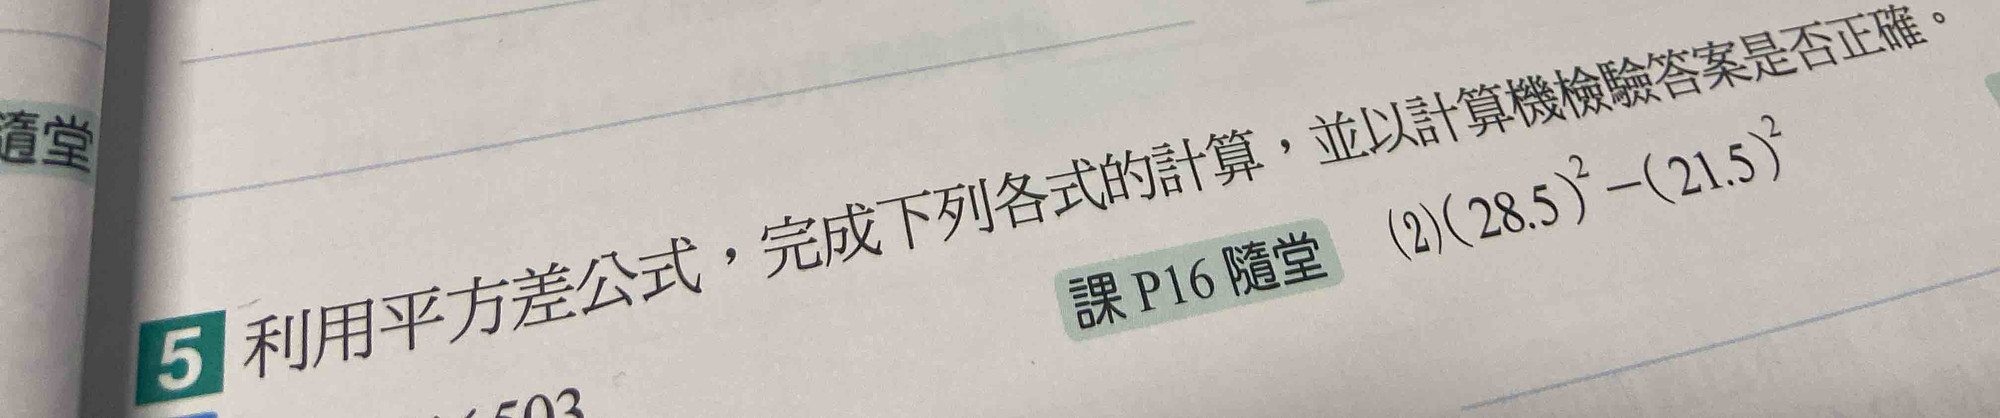 隨堂
5 利用平方差公式，完成下列各式的計算，並以計算機檢驗答案是否正確。
課 P16 隨堂 (2)(28.5)²－(21.5)²
503